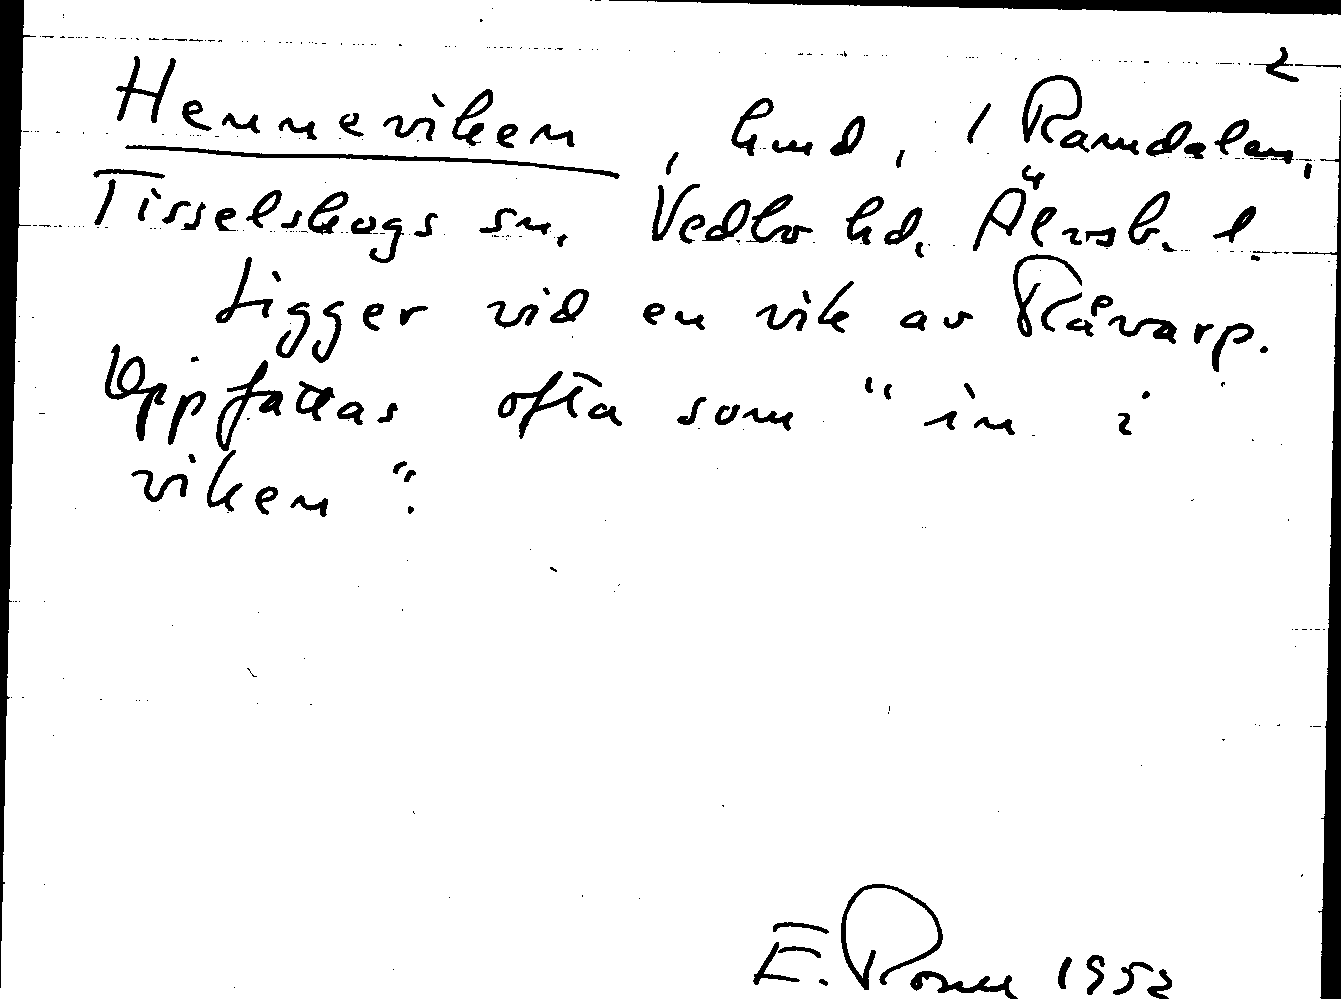 2
Henneviken, hmd, 1 Ramdalen,
Tisselskogs sn, Vedbo hd, Älvsb. l.
Ligger vid en vik av Råvarp.
Uppfattas ofta som "in i
viken".
E. Rosen 1952